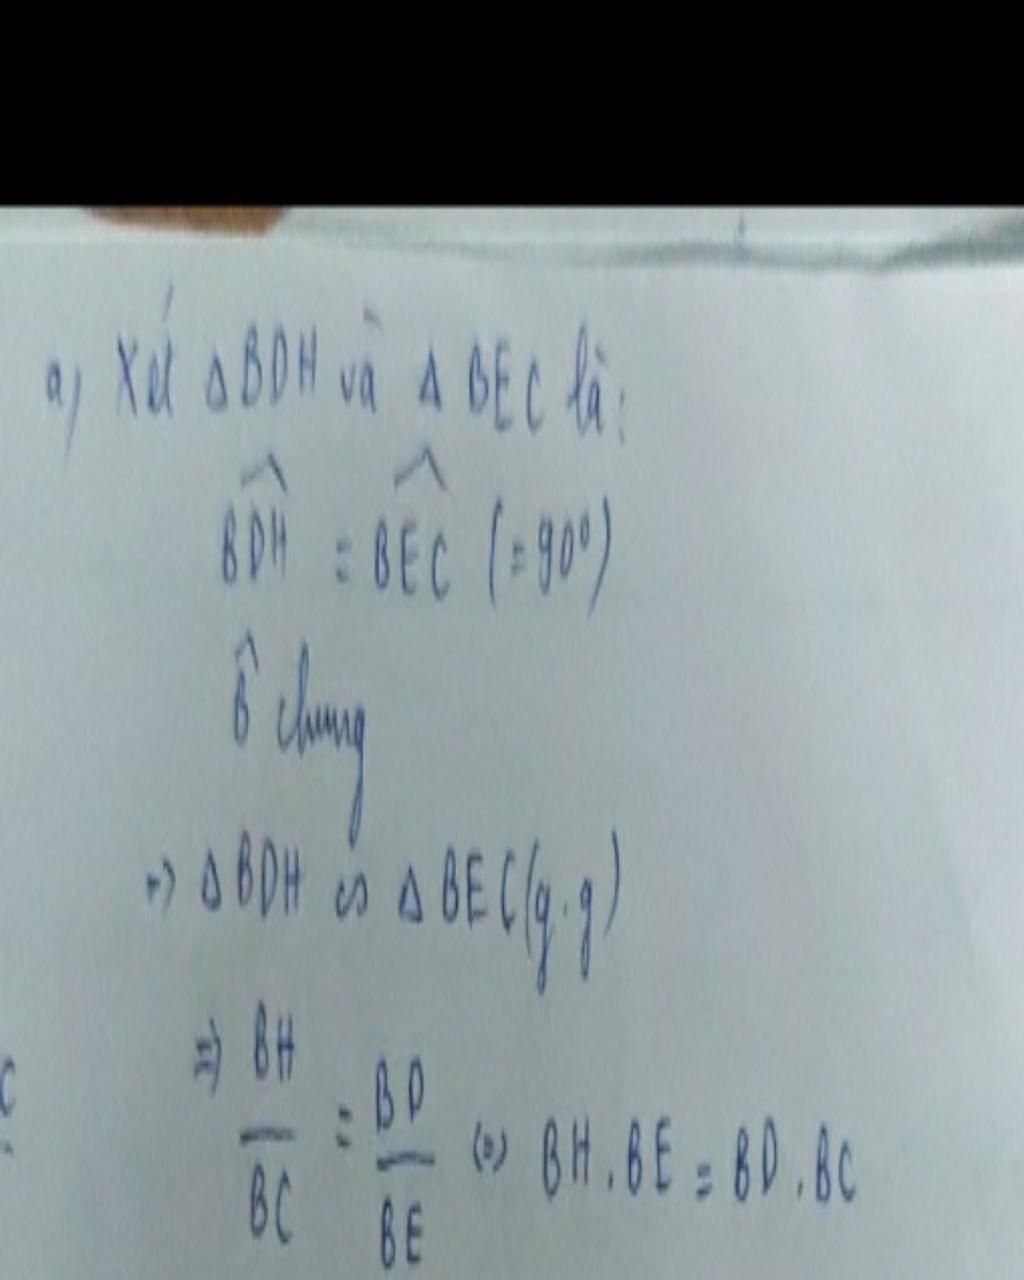 a) Xét Δ BDH và Δ BEC là:
BDH = BEC (= 90°)
B̂ chung
=> Δ BDH ∽ Δ BEC (g.g)
=> BH/BC = BD/BE <=> BH . BE = BD . BC
C